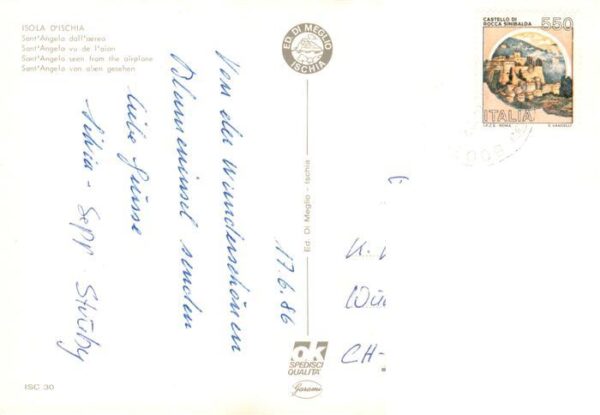 ISOLA D'ISCHIA
Sant'Angelo dall'aereo
Sant'Angelo vu de l'aion
Sant'Angelo seen from the airplane
Sant'Angelo von oben gesehen
17.6.86
Von der wunderschönen
Blumeninsel senden
liebe Grüsse
Silvia - Sepp -
ED. DI MEGLIO
ISCHIA
Ed. Di Meglio - Ischia
CASTELLO DI
ROCCA SINIBALDA
550
ITALIA
I.P.Z.S. - ROMA
CH-
OK
SPEDISCI
QUALITÀ
Garami
ISC 30